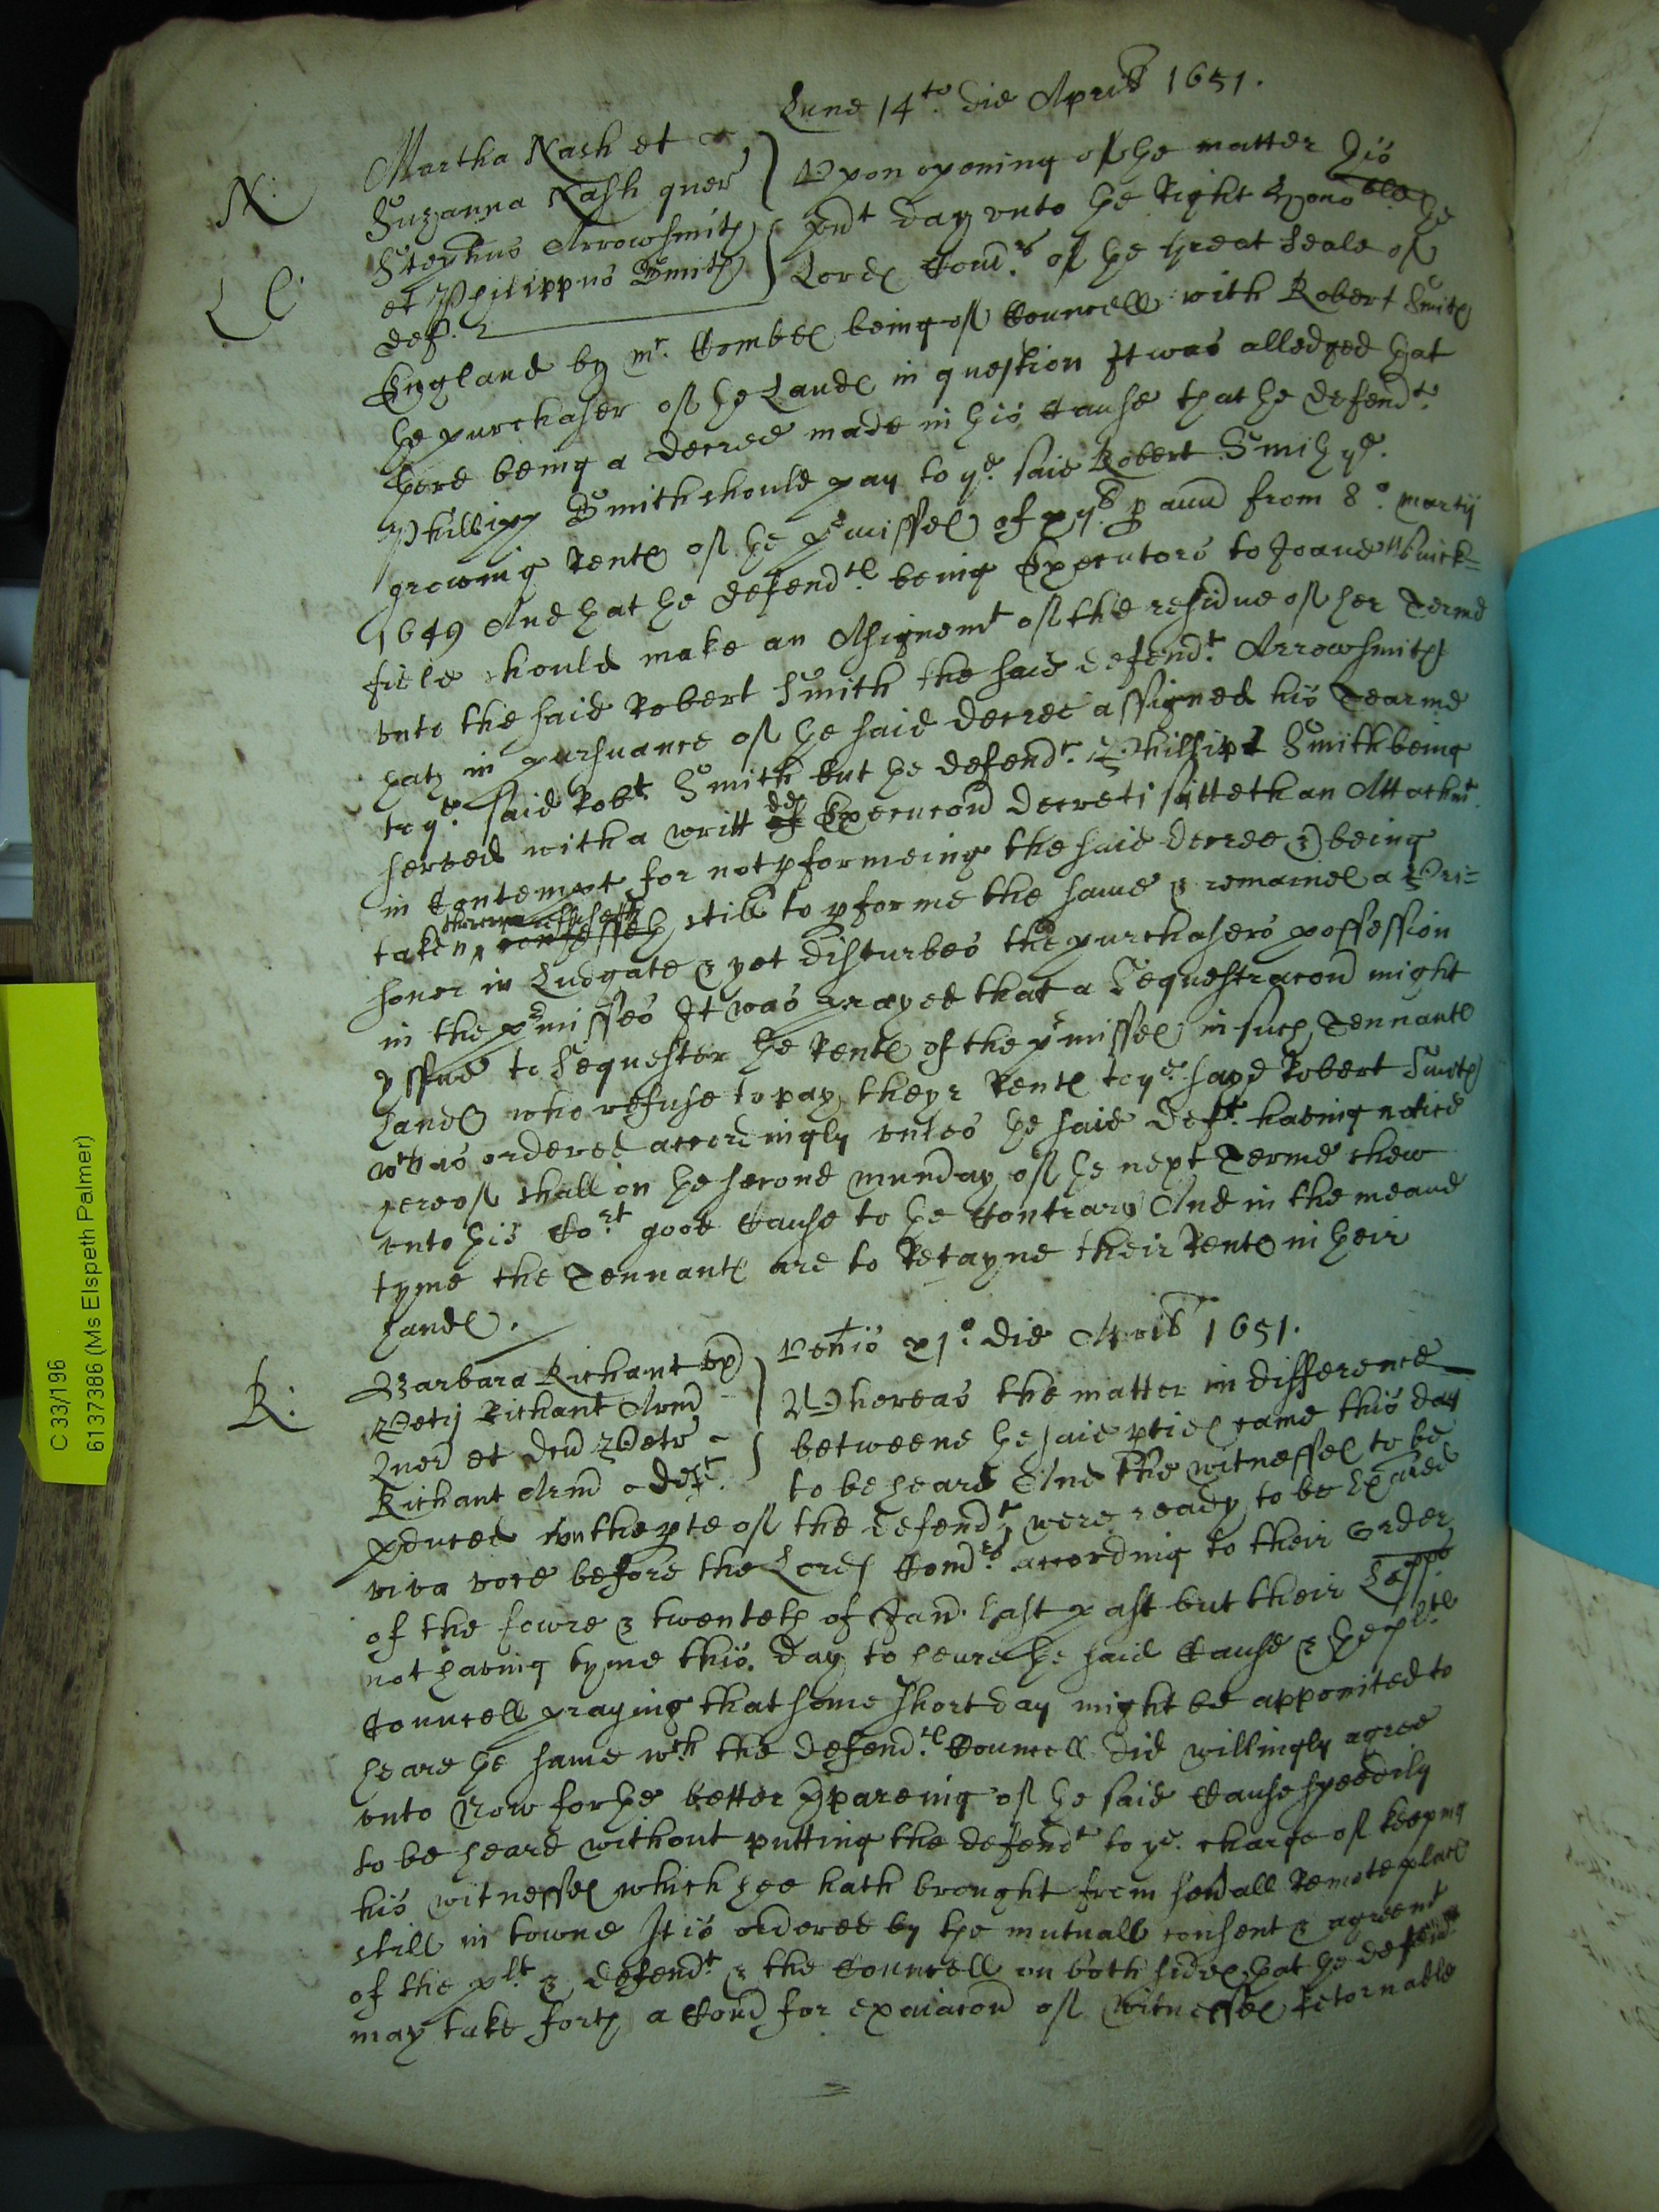 Lune 14to die Aprilis 1651.
N:
Ll:
Martha Nash et
Suzanna Nash quer
Stephus Arrowsmith
et Philippus Smith
def.
Upon opening of the matter this
pnt day unto the Right Honoble the
Lords Comrs of the Great Seale of
England by mr. Combes being of Councell with Robert Smith
the purchaser of the Lands in question It was alledged that
there being a Decree made in this Cause that the Defendt.
Phillipp Smith should pay to ye. said Robert Smith ye.
growing Rents of the pmisses of xyl. p ann from 8o. martij
1649 And that the Defendts. being Executors to Joane
feild should make an Assignemt of the residue of her Terme
unto the said Robert Smith the said defendt. Arrowsmith
hath in pursuance of the said Decree assigned his Tearme
to ye. said Robt. Smith but the defendt. Phillip Smith being
served with a writt de Execucon Decreti sitteth an Attachmt.
in Contempt for not pformeing the said Decree & being
taken still to pforme the same & remaines a Pri=
soner in Ludgate & yet disturbes the purchasers possession
in the pmisses It was prayed that a Sequestracon might
yssue to Sequester the Rents of the pmisses in such Tennants
hands who refuse to pay theyr Rents to ye. sayd Robert Smith
wch was ordered accordingly unles the said Deft. having notice
hereof shall on the second munday of the next Terme shew
unto this Cort good Cause to the Contrary And in the meane
tyme the Tennants are to Retayne their Rents in their
hands.
R:
Barbara Richaut ux
Petri Richaut Armi
Quer et dcu Petr
Richaut Armi deft.
Venis xjo. die Aprilis 1651.
Whereas the matter in difference
betweene the said pties came this day
to be heard And the witnesses to be
pduced on the pte of the defendt, were ready to be heard
viva voce before the Lords Comrs. according to their Order
of the fowre & twenteth of Jan. last past but their Lopps
not having tyme this day to heare the said Cause & the plts
Councell praying that some short day might be appointed to
heare the same wch the defendts. Councell did willingly agree
unto Now for the better ppareing of the said Cause speedily
to be heard without putting the defendt to ye. charge of keeping
his witnesses which hee hath brought from sevall Remote places
still in towne It is ordered by the mutuall consent & agreemt
of the plt. & defendt. & the Councell on both sides that the defendt
may take forth a Comn for exaiacon of Witnesses Retornable
C 33/196
6137386 (Ms Elspeth Palmer)